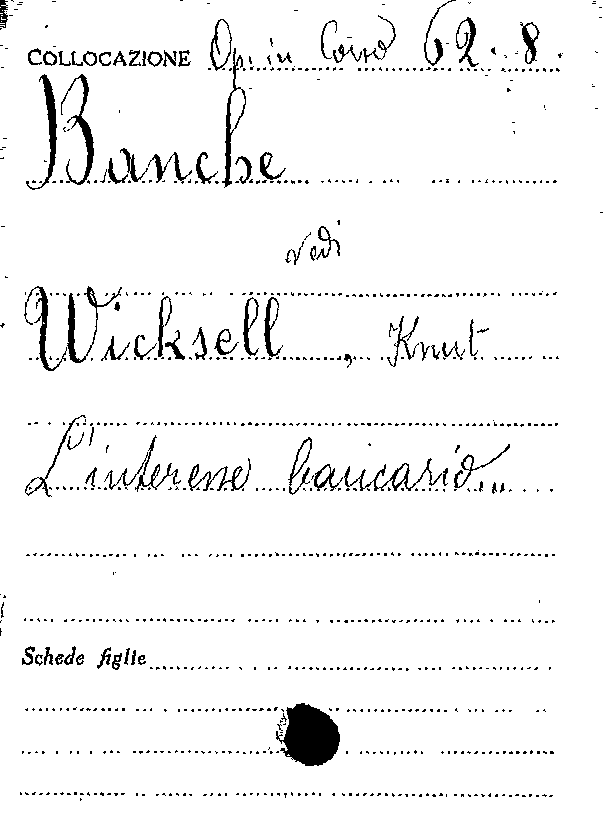 COLLOCAZIONE Op. in Corso 62. 8.
Banche
vedi
Wicksell, Knut
L'interesse bancario...
Schede figlie